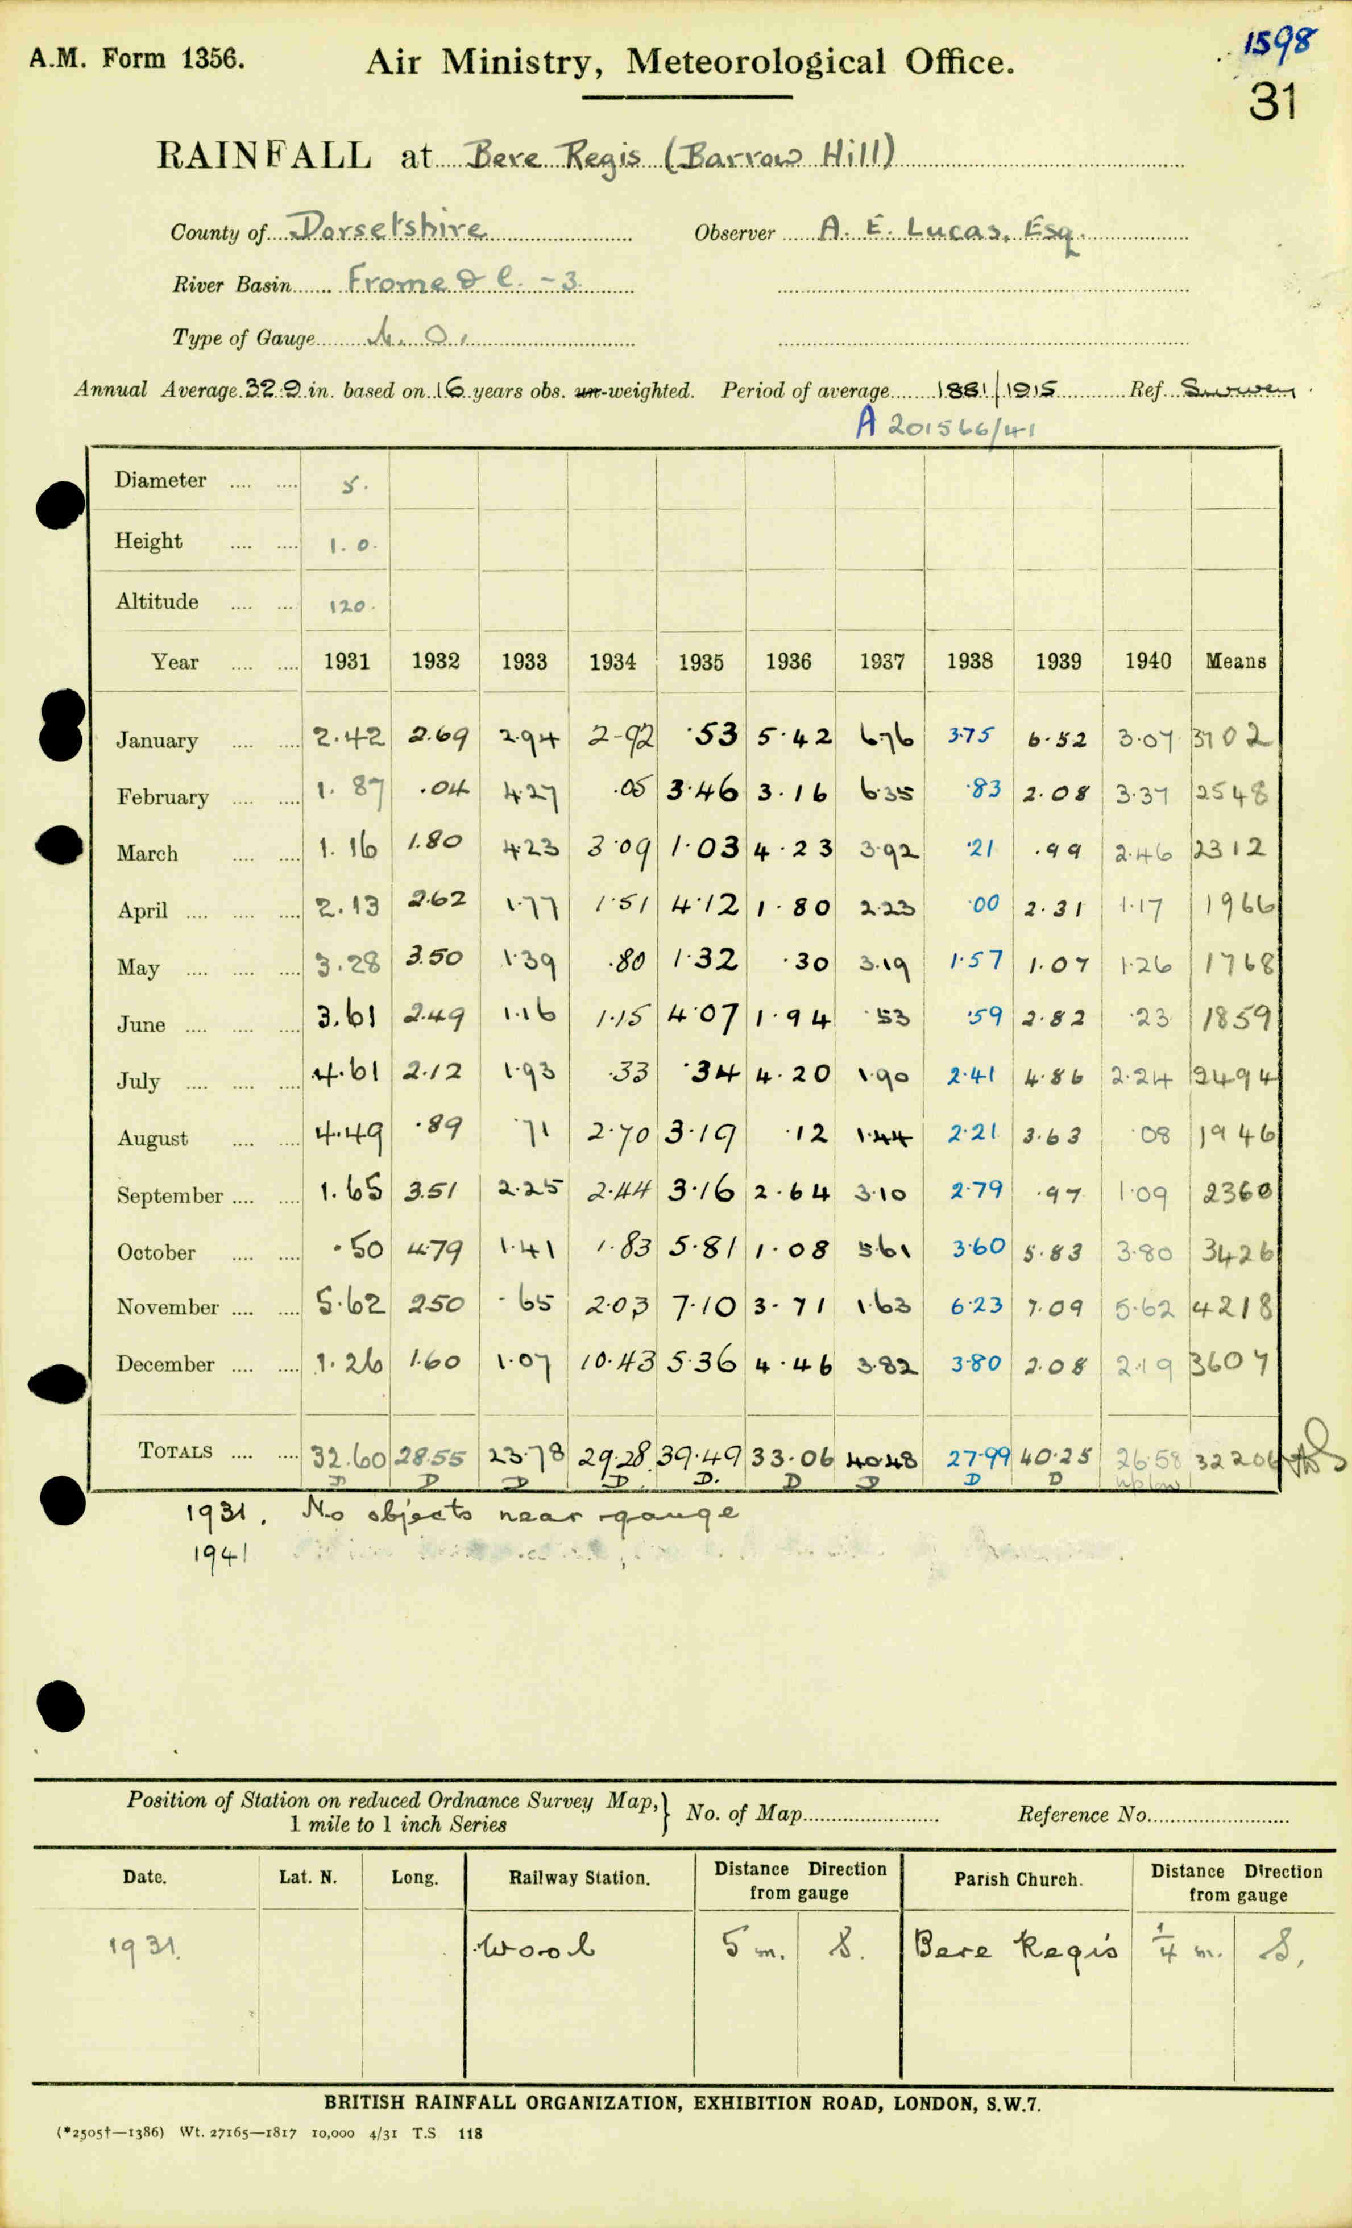 1598
A.M. Form 1356. Air Ministry, Meteorological Office.
31
RAINFALL at Bere Regis (Barrow Hill)
County of Dorsetshire Observer A. E. Lucas, Esq.
River Basin Frome &c. - 3
Type of Gauge M. O.
Annual Average 32.9 in. based on 16 years obs. un-weighted. Period of average 1881/1915 Ref.
A 201566/41
Diameter 5.
Height 1. 0.
Altitude 120.
Year 1931 1932 1933 1934 1935 1936 1937 1938 1939 1940 Means
January 2.42 2.69 2.94 2.92 .53 5.42 6.76 3.75 6.52 3.07 3702
February 1.87 .04 4.27 .05 3.46 3.16 6.35 .83 2.08 3.37 2548
March 1.16 1.80 4.23 3.09 1.03 4.23 3.92 .21 .99 2.46 2312
April 2.13 2.62 1.77 1.51 4.12 1.80 2.23 .00 2.31 1.17 1966
May 3.28 3.50 1.39 .80 1.32 .30 3.19 1.57 1.07 1.26 1768
June 3.61 2.49 1.16 1.15 4.07 1.94 .53 .59 2.82 .23 1859
July 4.61 2.12 1.93 .33 .34 4.20 1.90 2.41 4.86 2.24 2494
August 4.49 .89 .71 2.70 3.19 .12 1.44 2.21 3.63 .08 1946
September 1.65 3.51 2.25 2.44 3.16 2.64 3.10 2.79 .97 1.09 2360
October .50 4.79 1.41 1.83 5.81 1.08 5.61 3.60 5.83 3.80 3426
November 5.62 2.50 .65 2.03 7.10 3.71 1.63 6.23 7.09 5.62 4218
December 1.26 1.60 1.07 10.43 5.36 4.46 3.82 3.80 2.08 2.19 3607
TOTALS 32.60 28.55 23.78 29.28 39.49 33.06 40.48 27.99 40.25 26.58 32206
D D D D. D. D D D D
1931. No objects near gauge
1941
Position of Station on reduced Ordnance Survey Map, 1 mile to 1 inch Series } No. of Map Reference No.
Date. Lat. N. Long. Railway Station. Distance Direction from gauge Parish Church. Distance Direction from gauge
1931. Wool 5 m. S. Bere Regis 1/4 m. S.
BRITISH RAINFALL ORGANIZATION, EXHIBITION ROAD, LONDON, S.W.7.
(*2505†—1386) Wt. 27165—1817 10,000 4/31 T.S 118